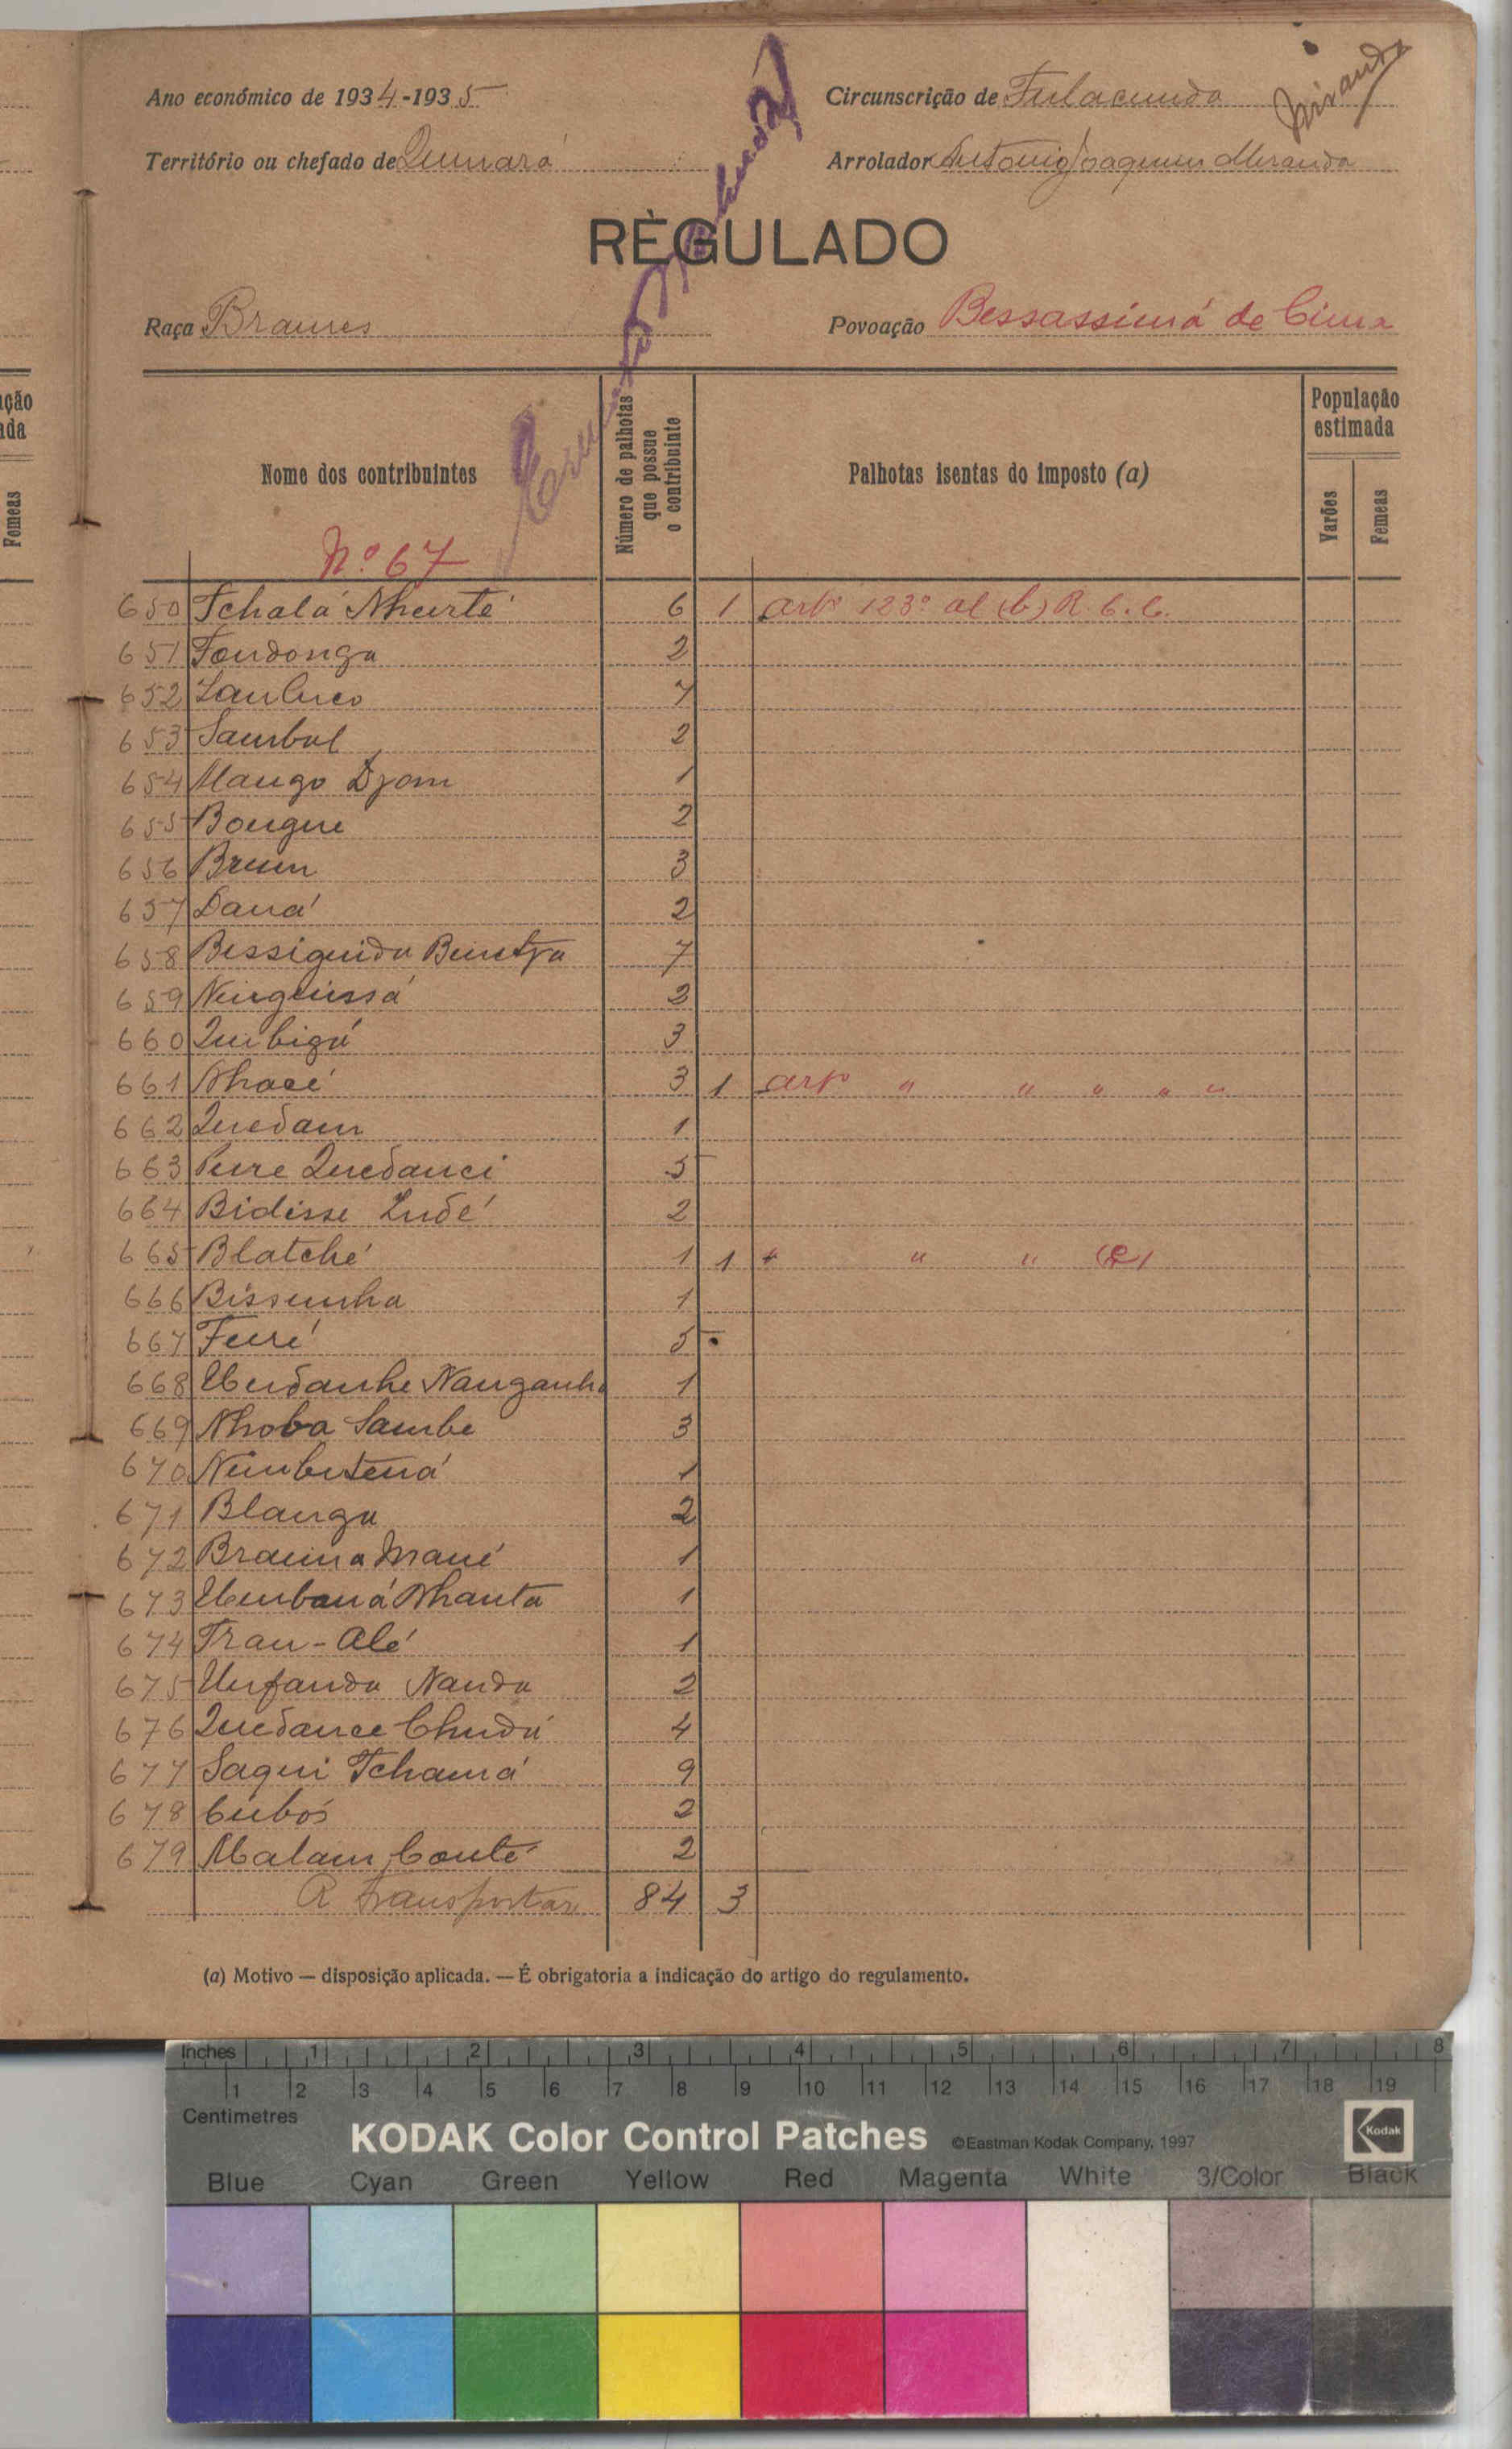 Ano económico de 1934-1935
Circunscrição de Fulacunda
Território ou chefado de Quinará
Arrolador António Joaquim Miranda
RÈGULADO
Raça Brames
Povoação Bessassimá de Cima
Nome dos contribuintes
Número de palhotas que possue o contribuinte
Palhotas isentas do imposto (a)
População estimada
Varões
Femeas
N.º 67
650 Tchalá Nhurté 6 1 artº 123º al (b) R. C. C.
651 Fondonga 2
652 7
653 Sambul 2
654 Mango Djom 1
655 Bongue 2
656 3
657 Daná 2
658 Bessiguida 7
659 2
660 Quibigá 3
661 3 1 artº " " " " "
662 Quedam 1
663 Quedanci 5
664 Bidisse 2
665 Blatché 1 1 " " "
666 Bissunha 1
667 5
668 Nanganha 1
669 Nhoba Sambe 3
670 1
671 Blanga 2
672 Braima Mané 1
673 Nhanta 1
674 Fran-Alé 1
675 Unfanda Nanda 2
676 Quedance 4
677 Saqui Tchamá 9
678 2
679 Malam Conté 2
A transportar 84 3
(a) Motivo — disposição aplicada. — É obrigatoria a indicação do artigo do regulamento.
ção
da
Femeas
Inches 1 2 3 4 5 6 7 8
1 2 3 4 5 6 7 8 9 10 11 12 13 14 15 16 17 18 19
Centimetres
KODAK Color Control Patches ©Eastman Kodak Company, 1997 Kodak
Blue Cyan Green Yellow Red Magenta White 3/Color Black